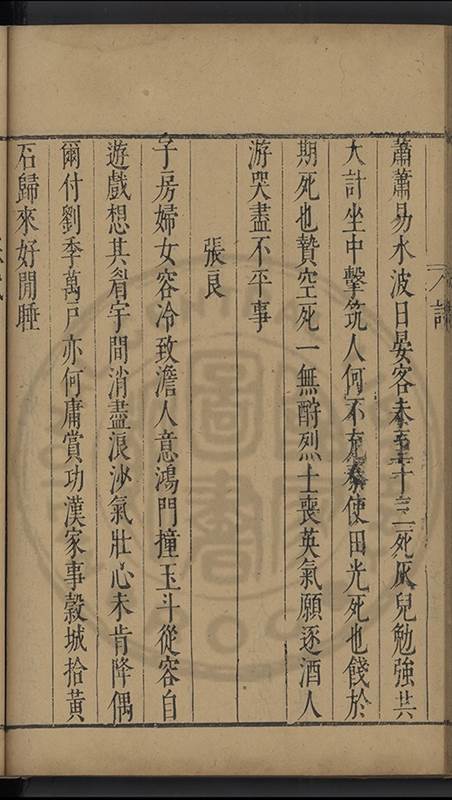 蕭蕭易水波日晏客未至十三死灰兒勉強共
大計坐中擊筑人何不充秦使田光死也餞於
期死也贄空死一無酧烈士喪英氣願逐酒人
游哭盡不平事
張良
子房婦女容冷致澹人意鴻門撞玉斗從容自
遊戲想其眉宇間消盡浪沙氣壯心未肯降偶
爾付劉季萬戶亦何庸賞功漢家事穀城拾黃
石歸來好閒睡